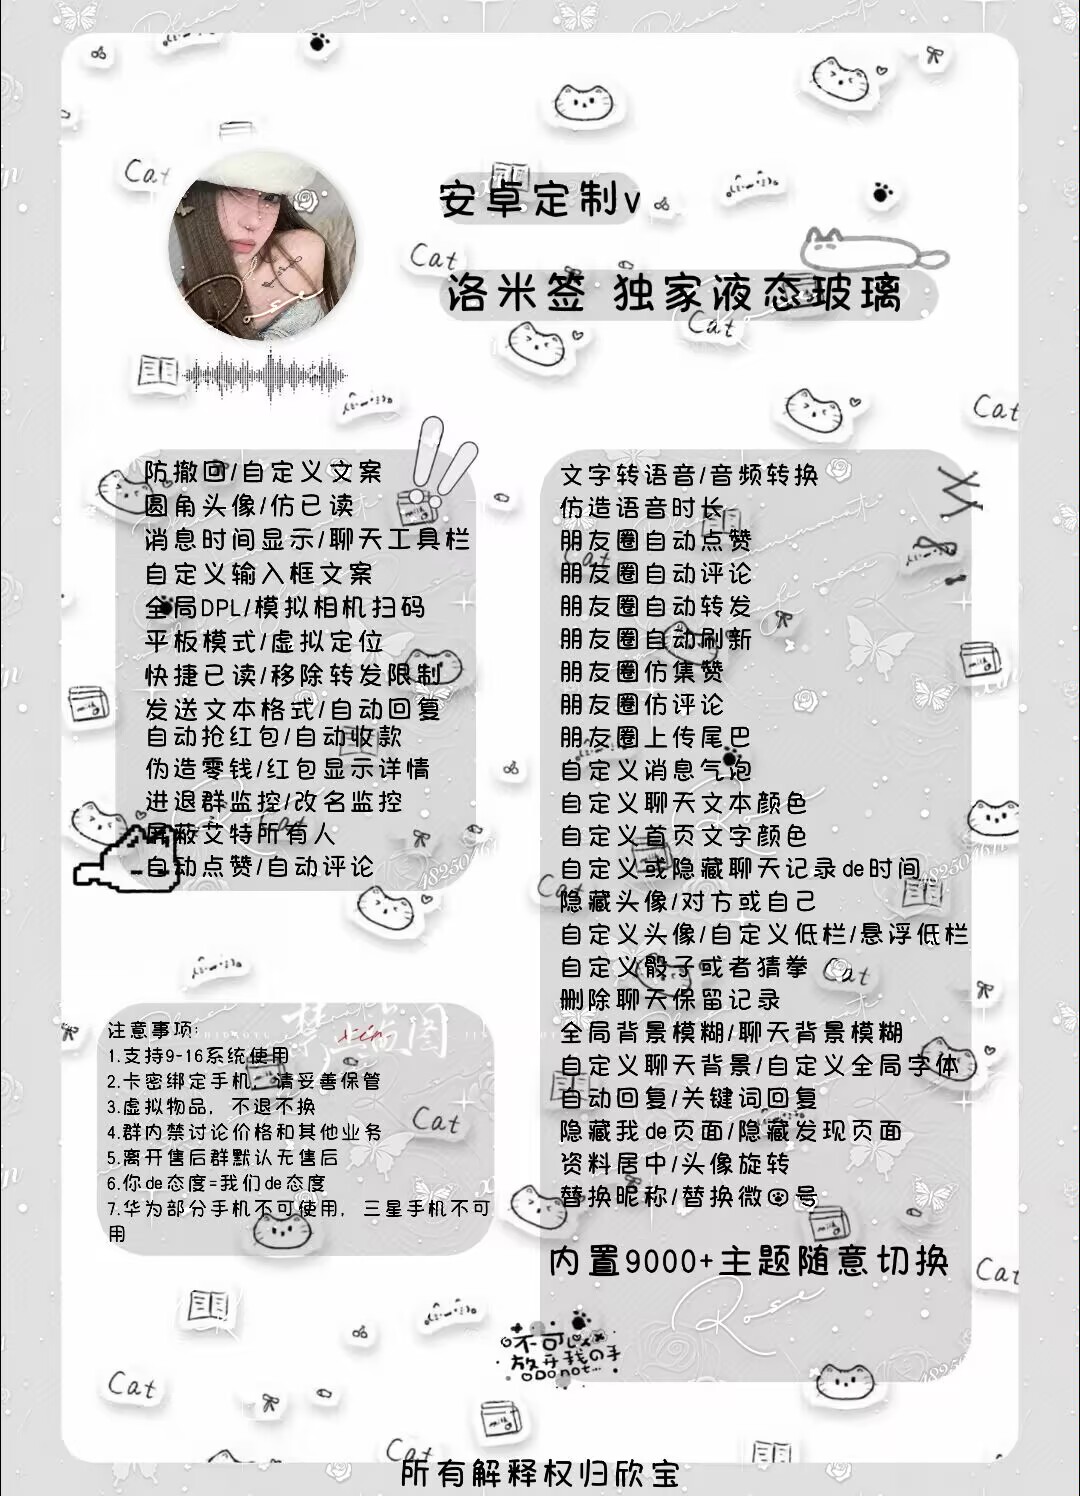 安卓定制v
洛米签 独家液态玻璃
防撤回/自定义文案
圆角头像/仿已读
消息时间显示/聊天工具栏
自定义输入框文案
全局DPL/模拟相机扫码
平板模式/虚拟定位
快捷已读/移除转发限制
发送文本格式/自动回复
自动抢红包/自动收款
伪造零钱/红包显示详情
进退群监控/改名监控
屏蔽艾特所有人
自动点赞/自动评论
文字转语音/音频转换
仿造语音时长
朋友圈自动点赞
朋友圈自动评论
朋友圈自动转发
朋友圈自动刷新
朋友圈仿集赞
朋友圈仿评论
朋友圈上传尾巴
自定义消息气泡
自定义聊天文本颜色
自定义首页文字颜色
自定义或隐藏聊天记录de时间
隐藏头像/对方或自己
自定义头像/自定义低栏/悬浮低栏
自定义骰子或者猜拳
删除聊天保留记录
全局背景模糊/聊天背景模糊
自定义聊天背景/自定义全局字体
自动回复/关键词回复
隐藏我de页面/隐藏发现页面
资料居中/头像旋转
替换昵称/替换微号
内置9000+主题随意切换
注意事项:
1.支持9-16系统使用
2.卡密绑定手机，请妥善保管
3.虚拟物品，不退不换
4.群内禁讨论价格和其他业务
5.离开售后群默认无售后
6.你de态度=我们de态度
7.华为部分手机不可使用，三星手机不可
用
禁盗图
xin
Cat
Cat
Cat
Cat
Cat
Cat
Cat
Cat
Cat
Rose
不可以
放开我の手
Do not...
所有解释权归欣宝